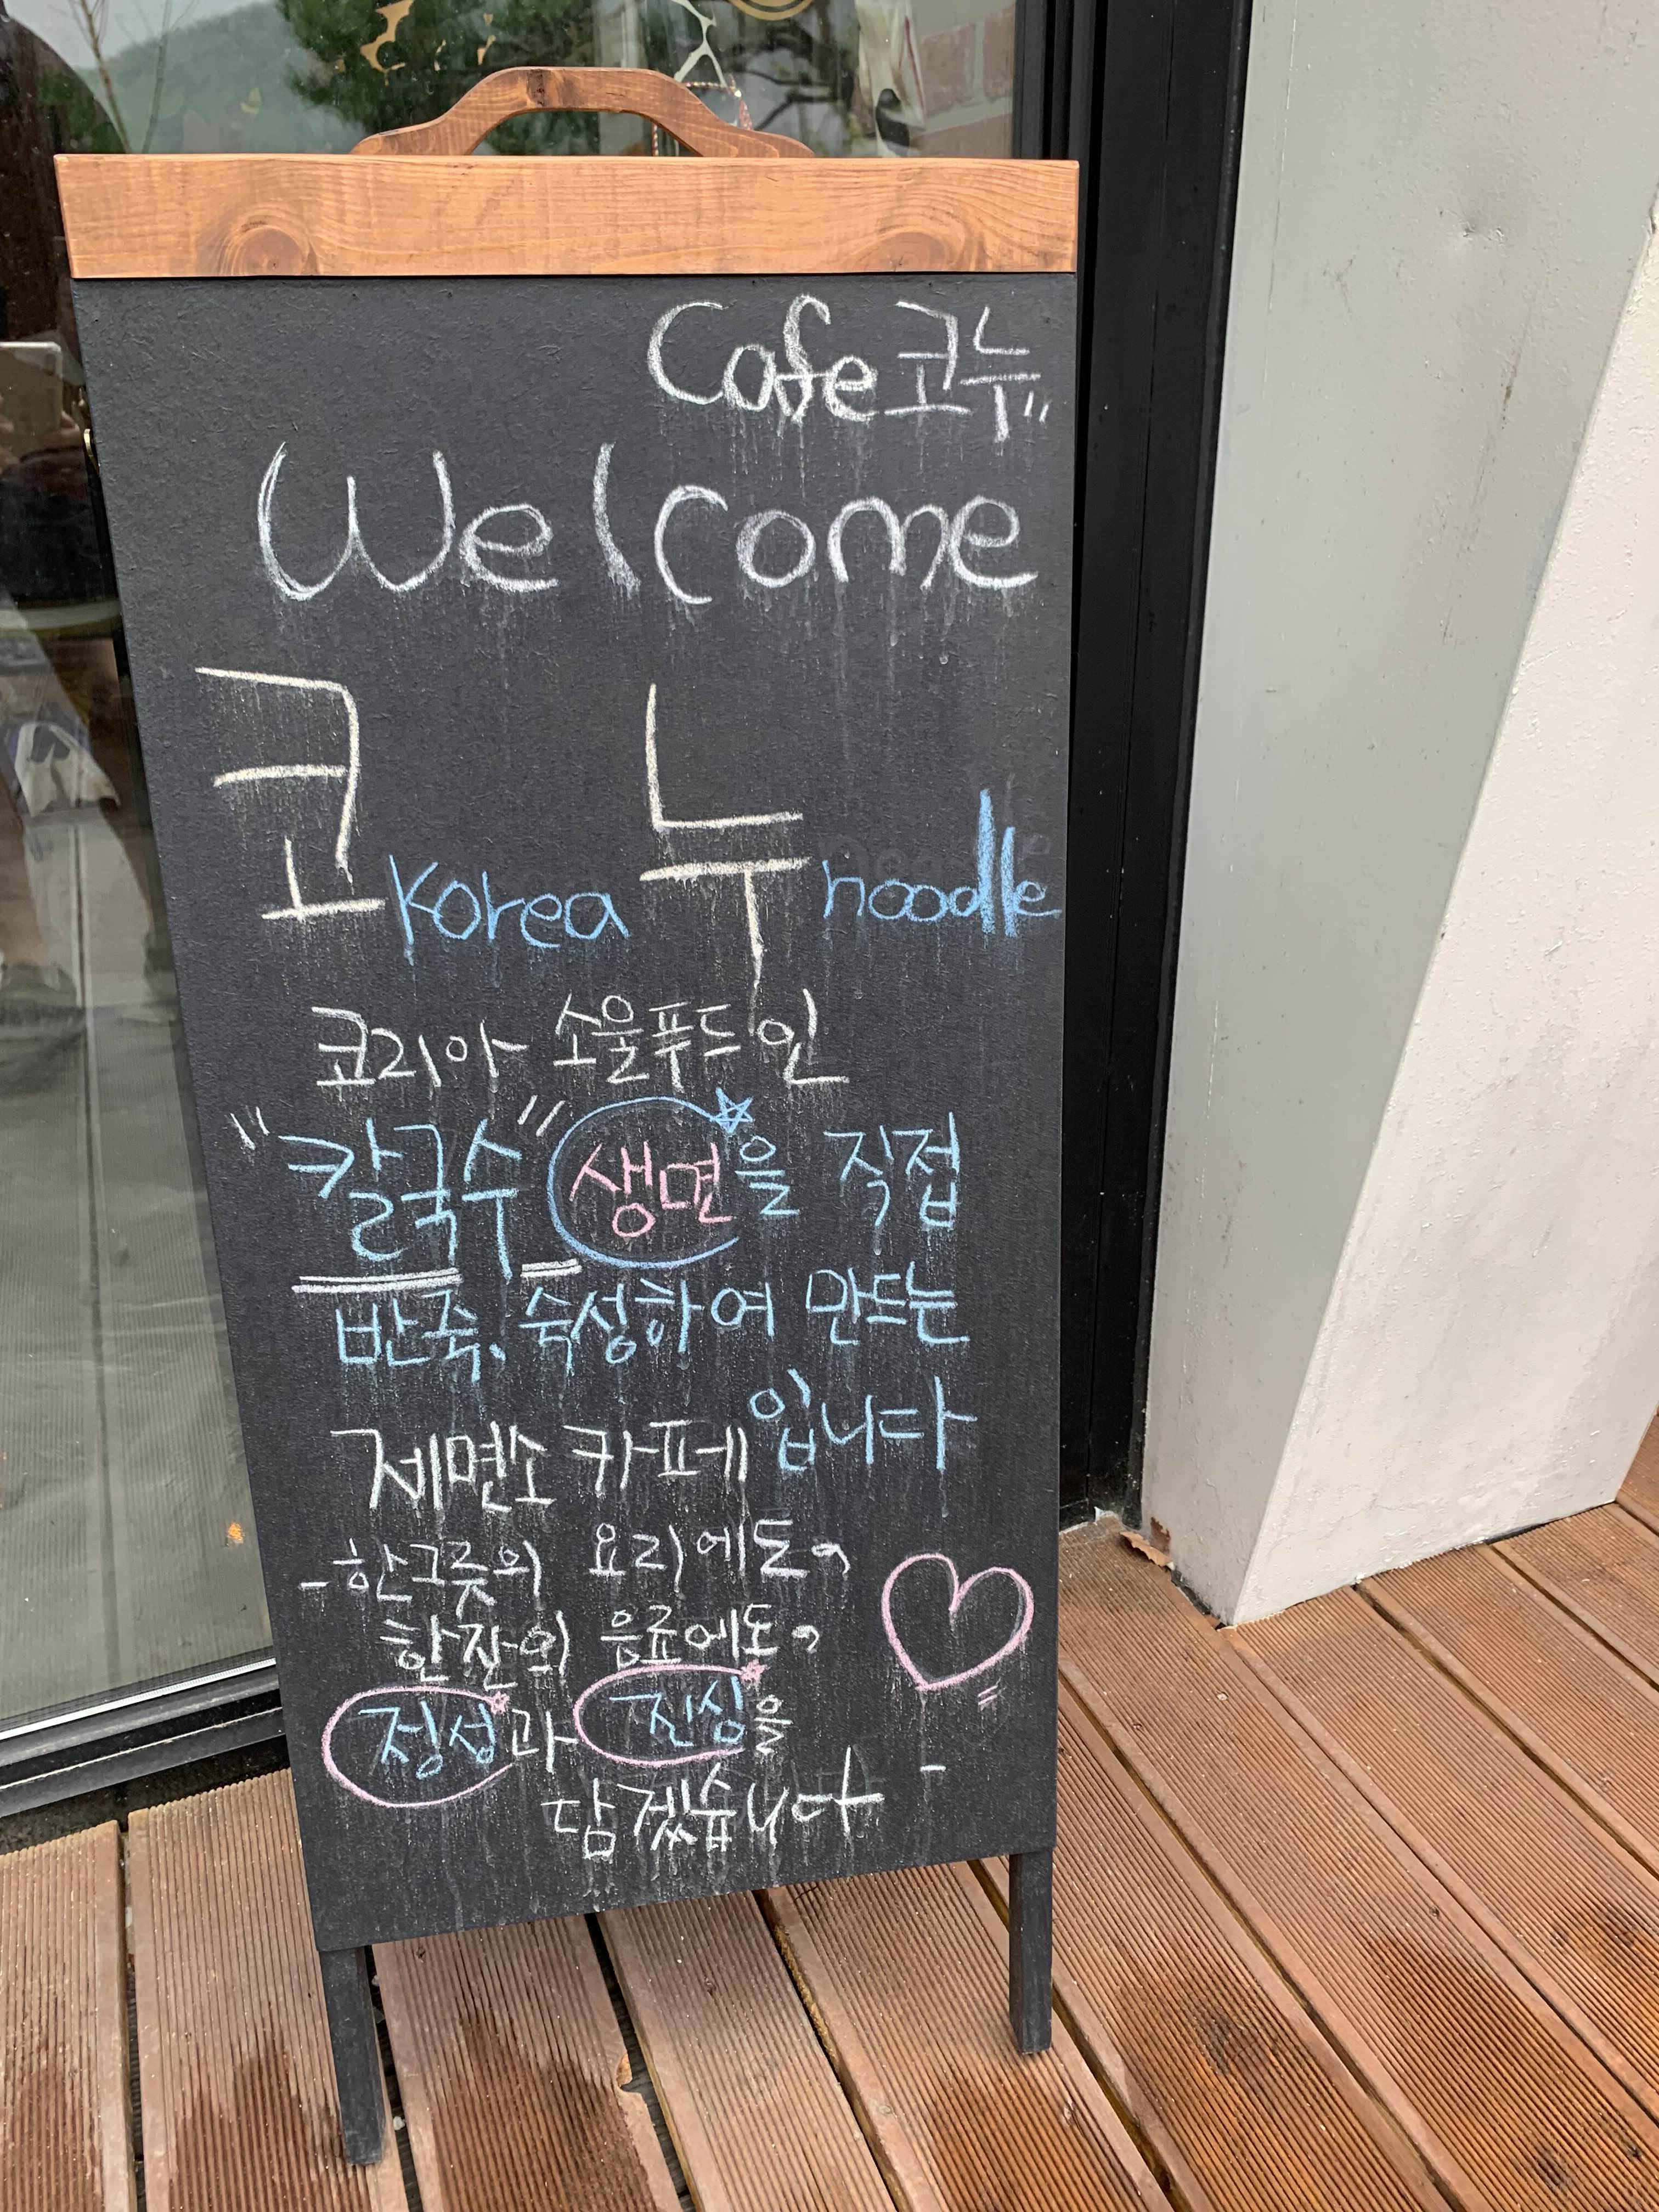 Cafe 코누"
Welcome
코 Korea 누 noodle
코리아 소울푸드인
"칼국수" 생면을 직접
반죽, 숙성하여 만드는
제면소 카페입니다
- 한그릇의 요리에도,
한잔의 음료에도,
정성과 진심을
담겠습니다 -